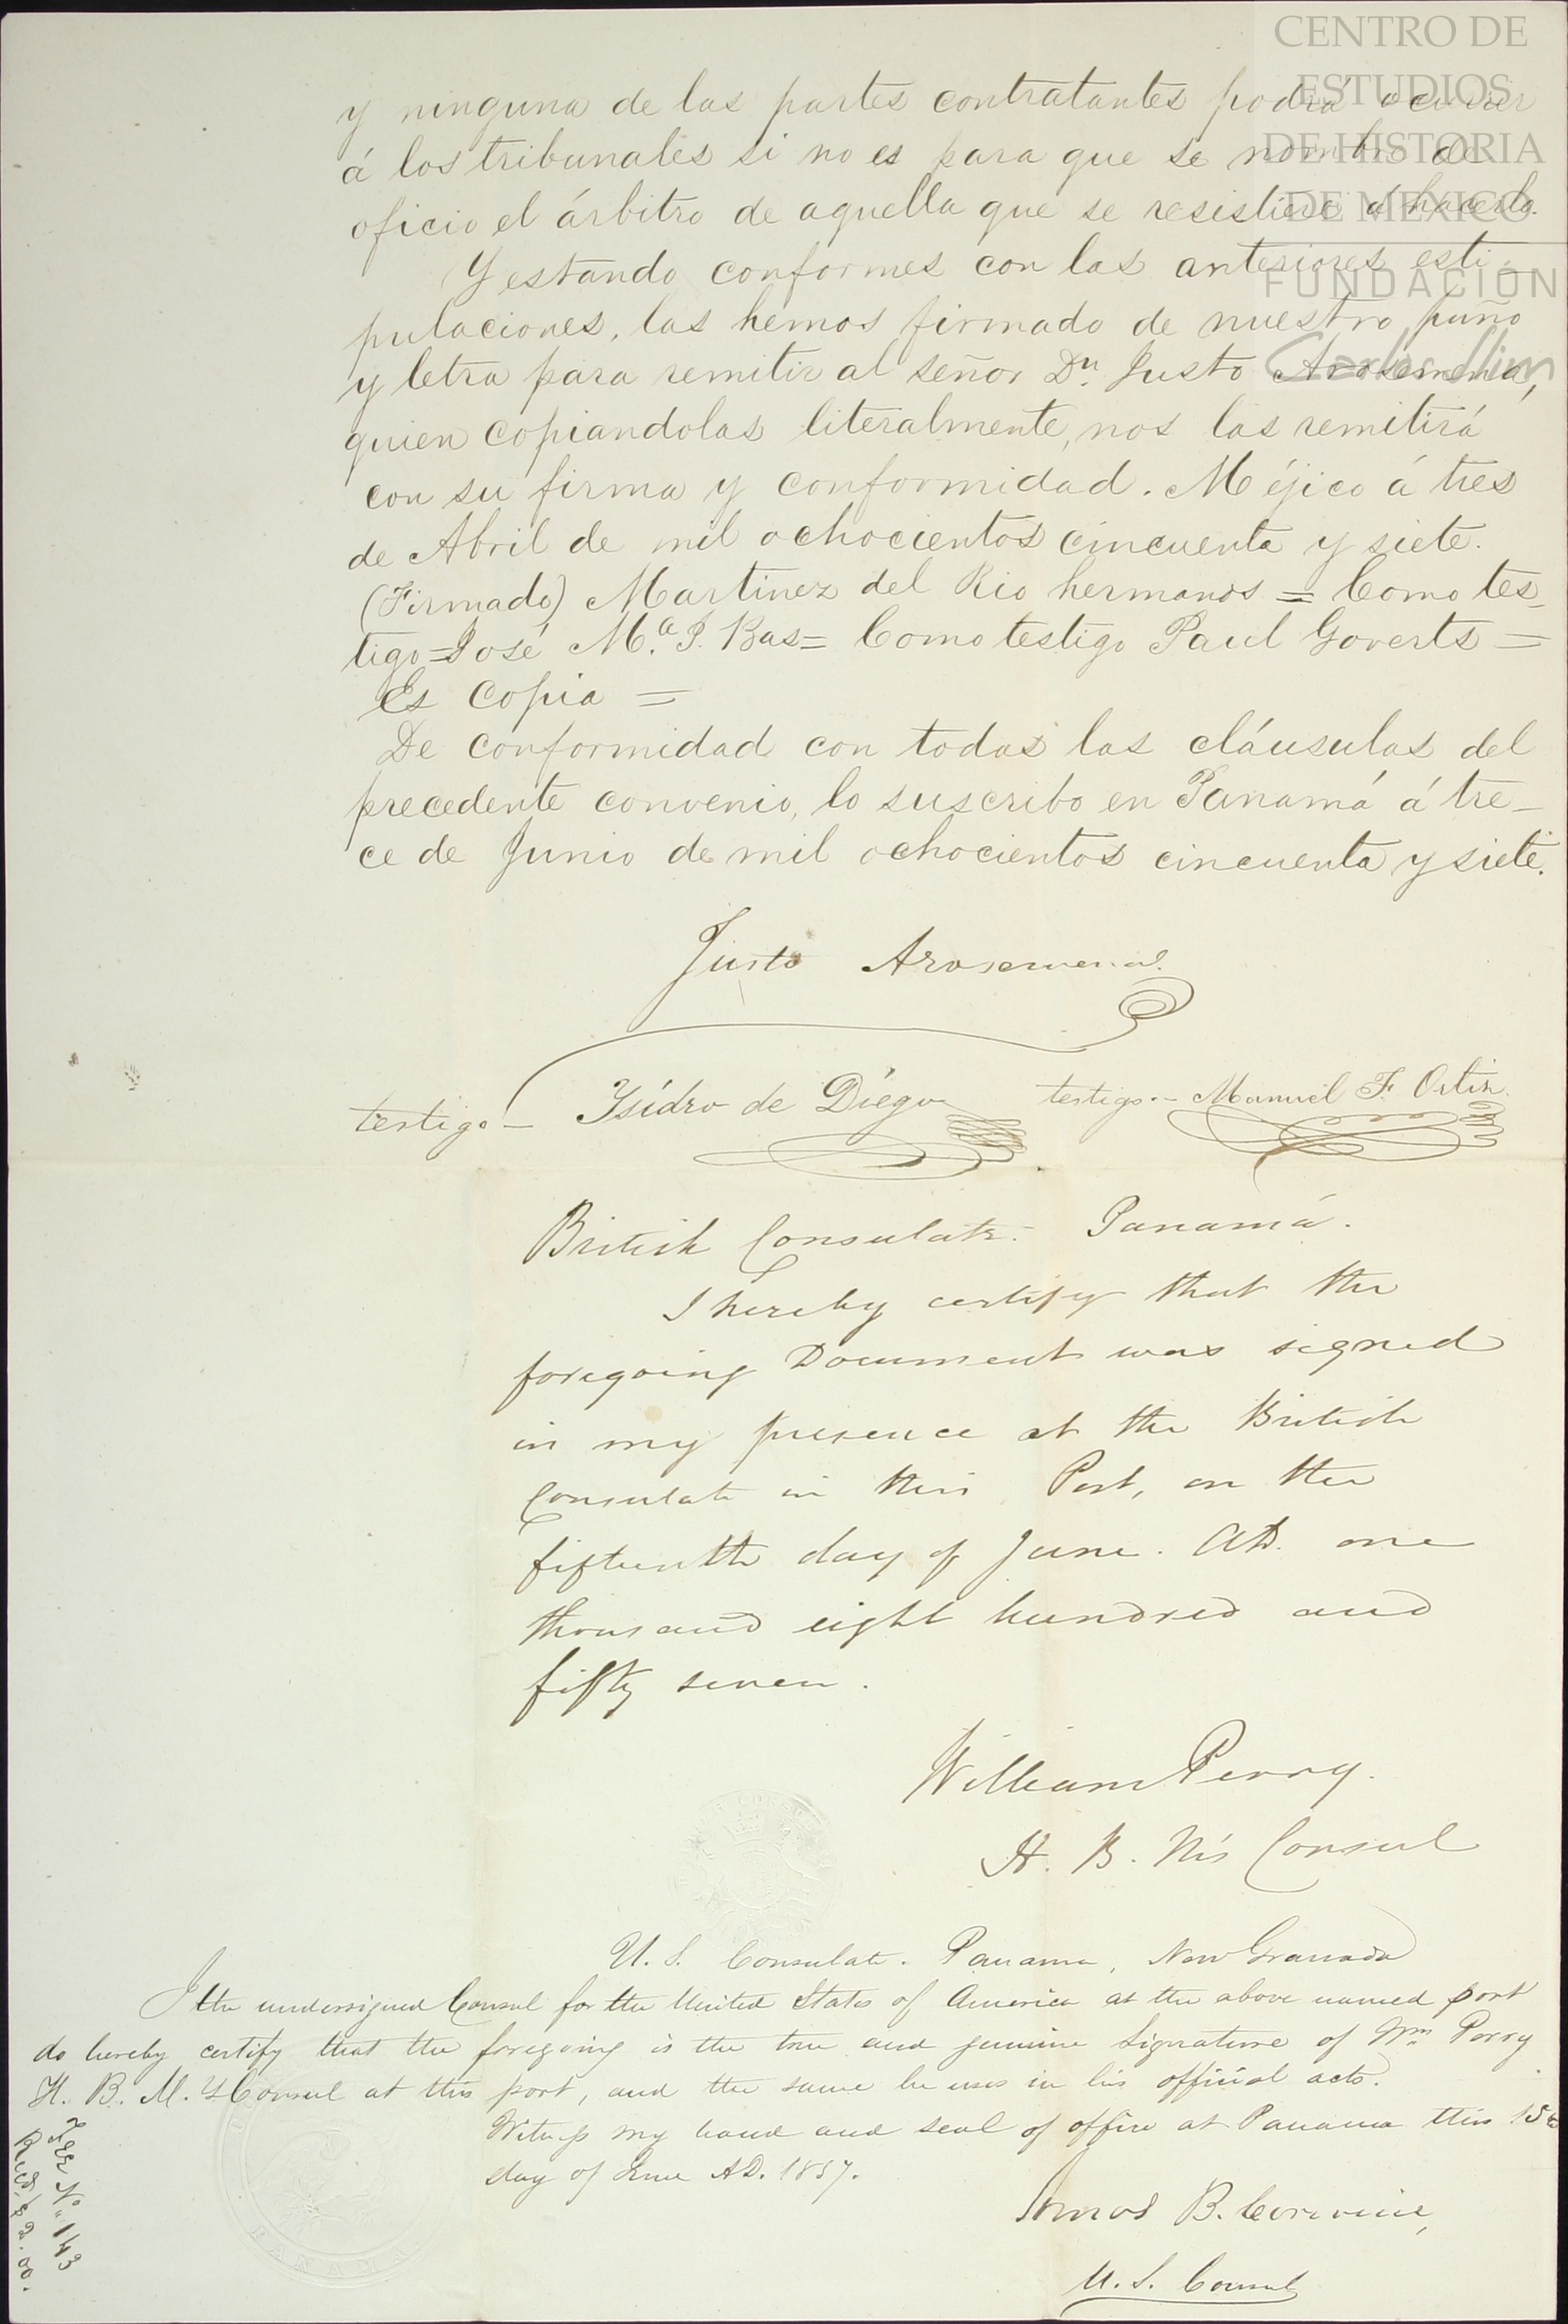 CENTRO DE
ESTUDIOS
DE HISTORIA
DE MEXICO
FUNDACIÓN
Carlos Slim
y ninguna de las partes contratantes podrá ocurrir
á los tribunales si no es para que se nombre de
oficio el árbitro de aquella que se resistiere á hacerlo.
Y estando conformes con las anteriores esti-
pulaciones, las hemos firmado de nuestro puño
y letra para remitir al señor Dn. Justo Arosemena,
quien copiandolas literalmente, nos las remitirá
con su firma y conformidad. Méjico á tres
de Abril de mil ochocientos cincuenta y siete.
(Firmado) Martinez del Rio hermanos = Como tes-
tigo = José M.a P. Bas = Como testigo Paul Goverts =
Es copia =
De conformidad con todas las cláusulas del
precedente convenio, lo suscribo en Panamá á tre-
ce de Junio de mil ochocientos cincuenta y siete.
Justo Arosemena
testigo - Ysídro de Diego
testigo - Manuel F. Ortiz
British Consulate. Panamá.
I hereby certify that the
foregoing Document was signed
in my presence at the British
Consulate in this Port, on the
fifteenth day of June. AD. one
thousand eight hundred and
fifty seven.
William Perry.
H. B. M's Consul
U. S. Consulate. Panama, New Granada
I the undersigned Consul for the United States of America at the above named port
do hereby certify that the foregoing is the true and genuine signature of Wm. Perry
H. B. M. Consul at this port, and the same he uses in his official acts.
Witness my hand and seal of office at Panama this 15
day of June AD. 1857.
Amos B. Corwine,
U. S. Consul
Fee No. 143
Recd. $2.00.
PANAMA